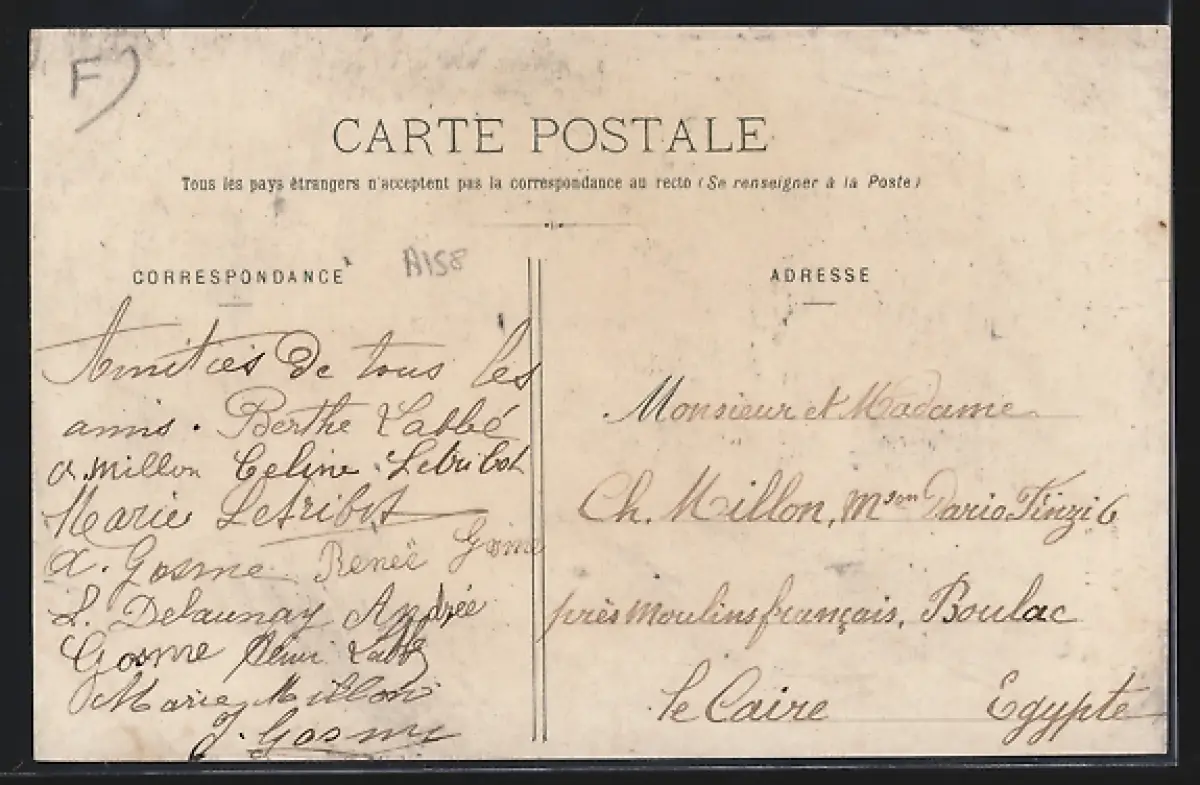 F
CARTE POSTALE
Tous les pays étrangers n'acceptent pas la correspondance au recto (Se renseigner à la Poste)
CORRESPONDANCE
A158
ADRESSE
Amitiés de tous les
amis. Berthe Labbé
a. Millon Celine Letribot
Marie Letribot
A. Gosme Renée Gosme
L. Delaunay Andrée
Gosme Henri Labbé
Marie Millon
J. Gosme
Monsieur et Madame
Ch. Millon, Mson Dario Finzi 6
près Moulins français, Boulac
le Caire Egypte